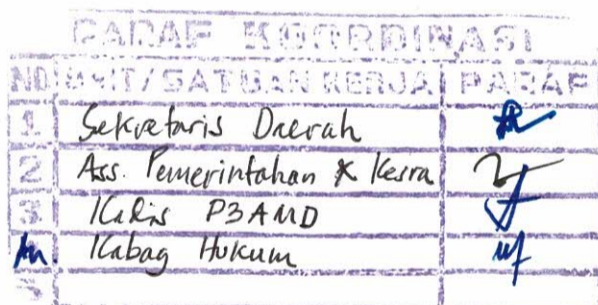 PARAF KOORDINASI
NO UNIT/SATUAN KERJA PARAF
1 Sekretaris Daerah
2 Ass. Pemerintahan & Kesra
3 Kadis P3AMD
Kabag Hukum
5